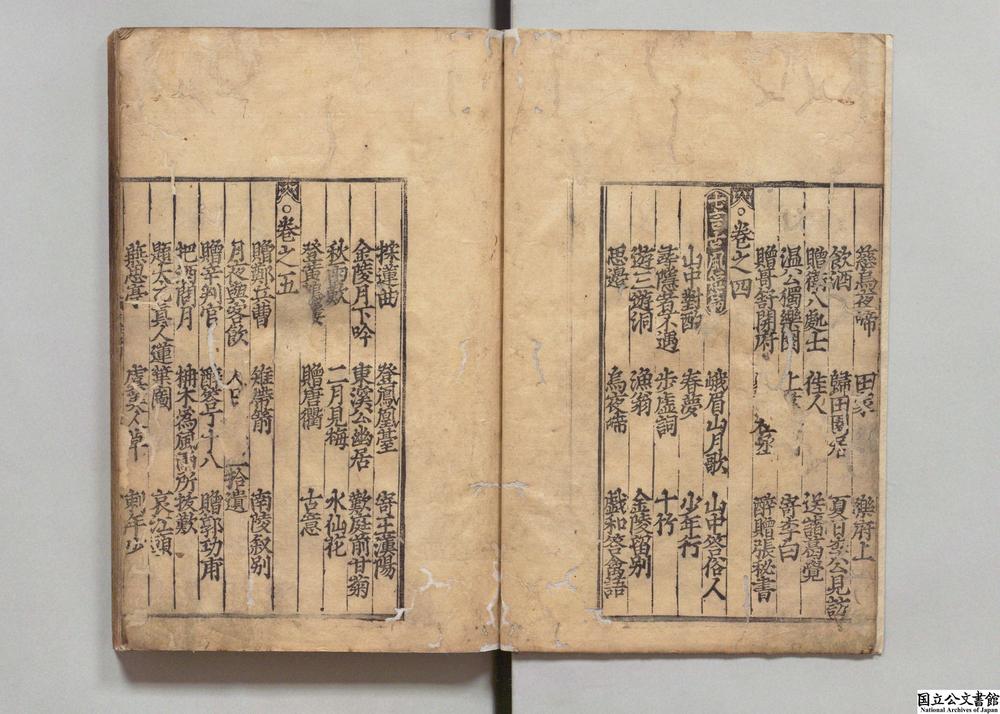 慈烏夜啼 田家 樂府上
飲酒 歸田園居 夏日李公見訪
贈衛八處士 佳人 送諸葛覺
溫公獨樂園 上 寄李白
贈哥舒開府 醉贈張秘書
卷之四
七言古風短篇
峨眉山月歌 山中答俗人
山中對酌 春夢 少年行
尋隱者不遇 步虛詞 十竹
遊三遊洞 漁翁 金陵留別
思邊 烏夜啼 戲和答禽語
採蓮曲 登鳳凰臺 寄王漢陽
金陵月下吟 東溪公幽居 歎庭前甘菊
秋雨歎 二月見梅 水仙花
登黃鶴樓 贈唐衢 古意
卷之五
贈鄭兵曹 雉帶箭 南陵叙別
月夜與客飲 人日 拾遺
贈辛判官 醉答丁十八 贈郭功甫
把酒問月 柟木為風雨所拔歎
題太乙真人蓮葉圖 哀江頭
燕思亭 虞美人草 刺年少
国立公文書館
National Archives of Japan